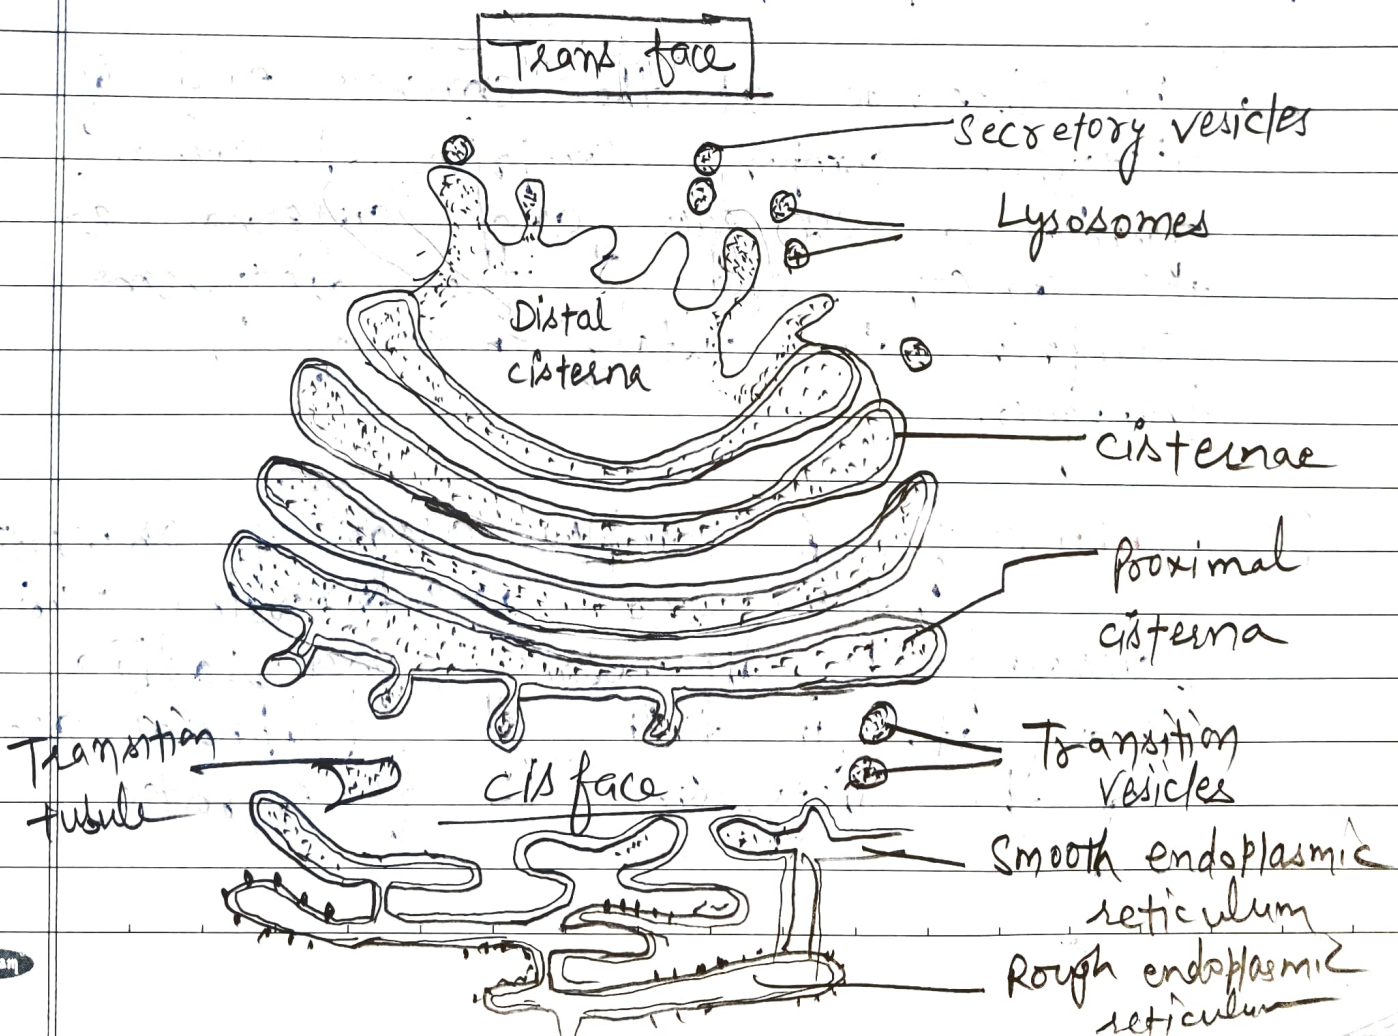 Trans face
Secretory vesicles
Lysosomes
Distal
cisterna
Cisternae
Proximal
cisterna
Transition
tubule
Cis face
Transition
vesicles
Smooth endoplasmic
reticulum
Rough endoplasmic
reticulum